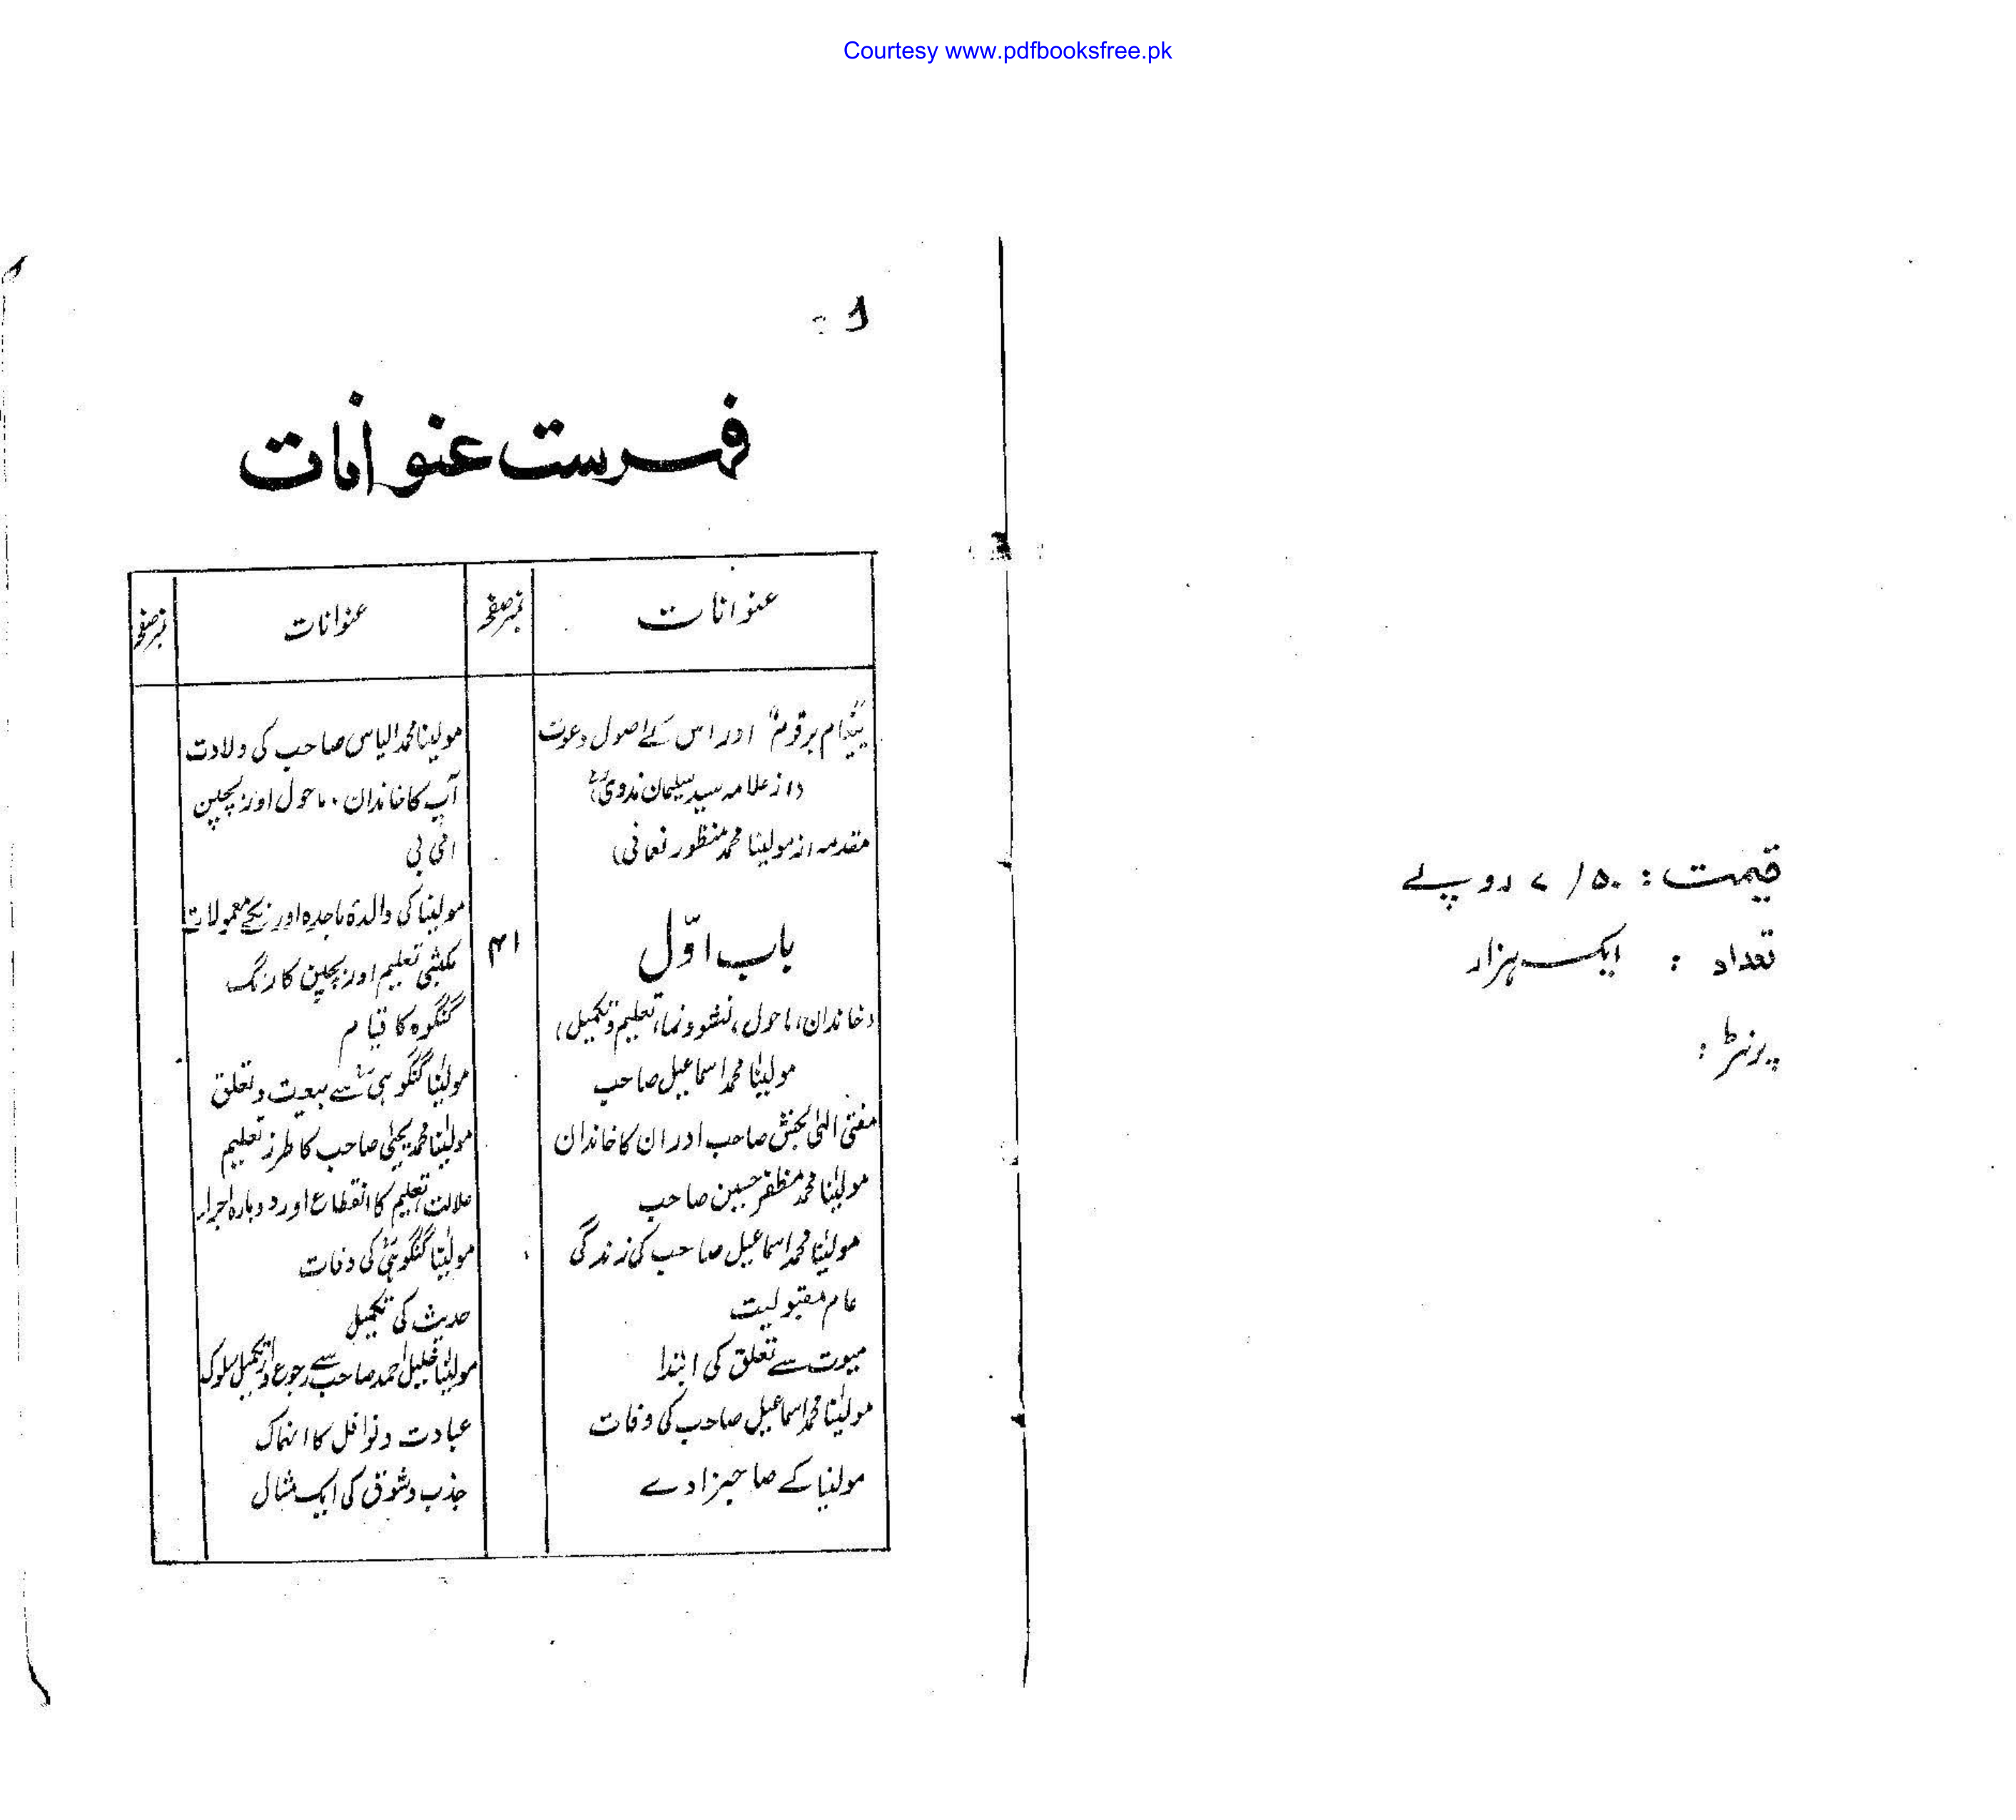 Courtesy www.pdfbooksfree.pk
قیمت : ۵۰/ ۷ روپے
تعداد : ایک ہزار
پرنٹر :
فہرست عنوانات
عنوانات
نمبر صفحہ
پیغام برقوم" اور اس کے اصول دعوت
(از علامہ سید سلیمان ندویؒ)
مقدمہ (از مولینا محمد منظور نعمانی)
باب اوّل
۴۱
(خاندان، ماحول، نشوونما، تعلیم و تکمیل)
مولینا محمد اسماعیل صاحب
مفتی الٰہی بخش صاحب اور ان کا خاندان
مولینا محمد مظفر حسین صاحب
مولینا محمد اسماعیل صاحب کی زندگی
عام مقبولیت
میوت سے تعلق کی ابتدا
مولینا محمد اسماعیل صاحب کی وفات
مولینا کے صاحبزادے
عنوانات
نمبر صفحہ
مولینا محمد الیاس صاحب کی ولادت
آپ کا خاندان، ماحول اور بچپن
امّی بی
مولینا کی والدۂ ماجدہ اور ان کے معمولات
مکتبی تعلیم اور بچپن کا رنگ
گنگوہ کا قیام
مولینا گنگوہیؒ سے بیعت و تعلق
مولینا محمد یحیٰی صاحب کا طرز تعلیم
علالت، تعلیم کا انقطاع اور دوبارہ اجراء
مولینا گنگوہیؒ کی وفات
حدیث کی تکمیل
مولینا خلیل احمد صاحب سے رجوع اور تکمیل سلوک
عبادت و نوافل کا انہماک
جذب و شوق کی ایک مثال